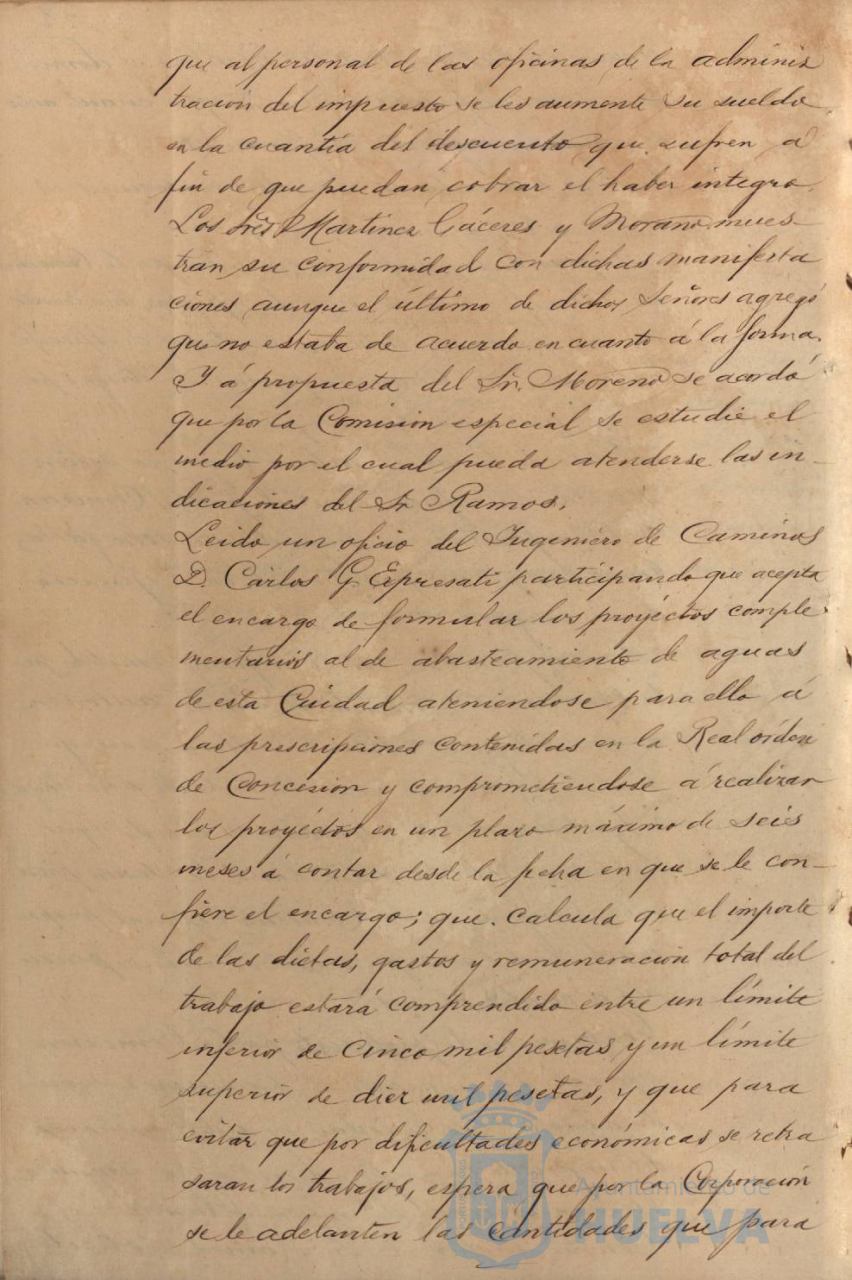 que al personal de las oficinas de la adminis
tracion del impuesto se les aumente su sueldo
en la cuantía del descuento que sufren á
fin de que puedan cobrar el haber integro.
Los Sres Martinez Cáceres y Morano mues
tran su conformidad con dichas manifesta
ciones aunque el último de dichos Señores agregó
que no estaba de acuerdo en cuanto á la forma.
Y á propuesta del Sr. Moreno se acordó
que por la Comision especial se estudie el
medio por el cual pueda atenderse las in-
dicaciones del Sr Ramos.
Leido un oficio del Ingeniero de Caminos
D. Cárlos G. participando que acepta
el encargo de formular los proyéctos comple-
mentarios al de abastecimiento de aguas
de esta Ciudad ateniendose para ello á
las prescripciones contenidas en la Real órden
de Concesion y comprometiendose á realizar
los proyéctos en un plazo máximo de seis
meses á contar desde la fecha en que se le con-
fiere el encargo; que calcula que el importe
de las dietas, gastos y remuneración total del
trabajo estará comprendido entre un límite
inferior de cinco mil pesetas y un límite
superior de diez mil pesetas, y que para
evitar que por dificultades económicas se retra
saran los trabajos, espera que por la Corporación
se le adelanten las cantidades que para
Ayuntamiento de
HUELVA